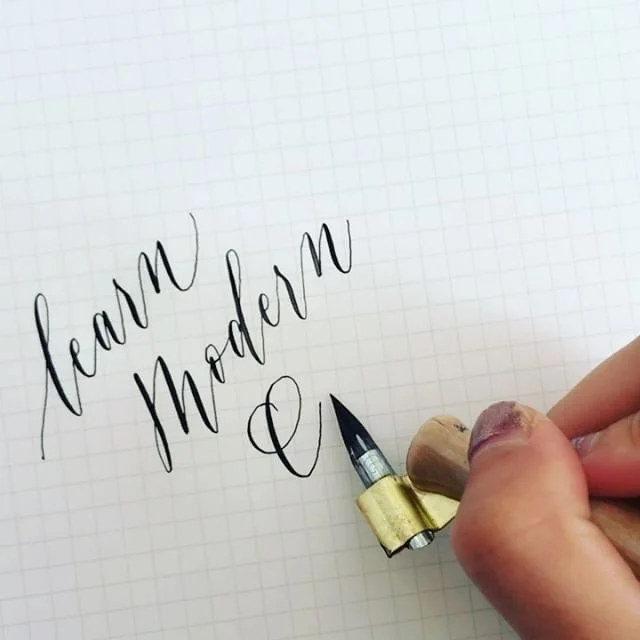 learn
modern
C